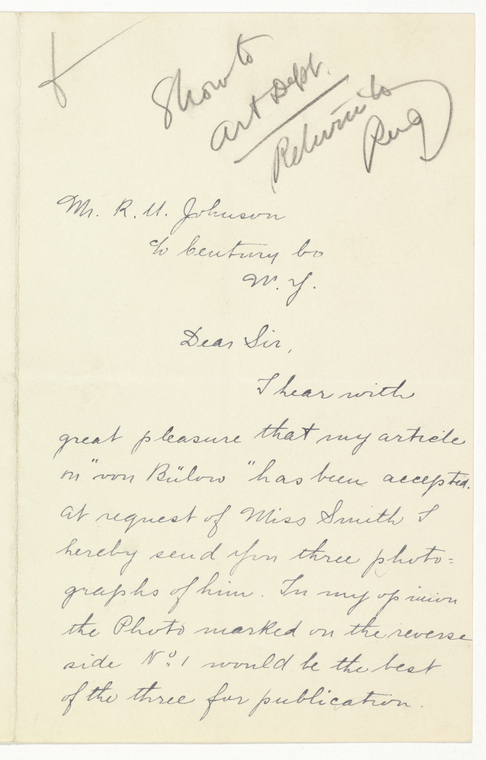 Show to
Art Dept.
Return to
Mr. R. U. Johnson
c/o Century Co
N. Y.
Dear Sir,
I hear with
great pleasure that my article
on "von Bülow" has been accepted.
at request of Miss Smith I
hereby send you three photo=
graphs of him. In my opinion
the Photo marked on the reverse
side No. 1 would be the best
of the three for publication.